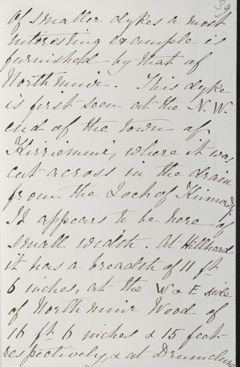 39
of smaller dykes a most
interesting example is
furnished by that of
North Muir. This dyke
is first seen at the N.W.
end of the town of
Kirriemuir, where it was
cut across in the drain
from the Loch of Kinnordy.
It appears to be here of
small width. At Hillhead
it has a breadth of 11 ft
6 inches, at the W & E side
of North Muir Wood of
16 ft 6 inches & 15 feet
respectively & at Drumclune